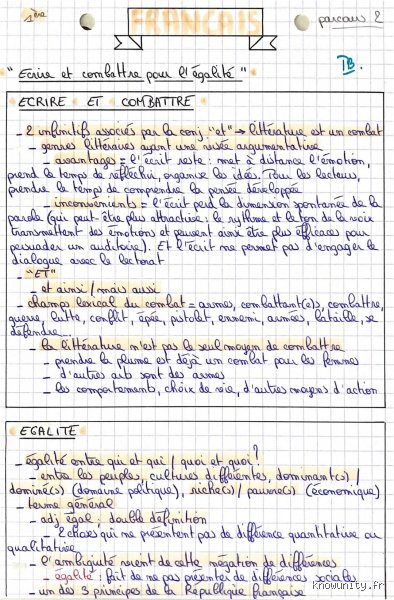 1ère
FRANCAIS
parcours 2
" Ecrire et combattre pour l'égalité "
TB.
ECRIRE ET COMBATTRE
_ 2 infinitifs associés par la conj "et" → littérature est un combat
_ genres littéraires ayant une visée argumentative
_ avantages = l'écrit reste : met à distance l'émotion,
prend le temps de réfléchir, organise les idées. Pour les lecteurs,
prendre le temps de comprendre la pensée développée
_ inconvénients = l'écrit perd la dimension spontanée de la
parole (qui peut être plus attractive : le rythme et le ton de la voix
transmettent des émotions et peuvent ainsi être plus efficaces pour
persuader un auditoire). Et l'écrit ne permet pas d'engager le
dialogue avec le lectorat
_ "ET"
_ et ainsi / mais aussi
_ champs lexical du combat = armes, combattant(e)s, combattre,
guerre, lutte, conflit, épée, pistolet, ennemi, armées, bataille, se
défendre...
_ la littérature n'est pas le seul moyen de combattre
_ prendre la plume est déjà un combat pour les femmes
_ d'autres arts sont des armes
_ les comportements, choix de vie, d'autres moyens d'action
EGALITE
_ égalité entre qui et qui / quoi et quoi ?
_ entre les peuples, cultures différentes, dominant(s) /
dominé(s) (domaine politique), riche(s) / pauvre(s) (économique)
_ terme général
_ adj égal : double définition
_ 2 choses qui ne présentent pas de différence quantitative ou
qualitative
_ l'ambiguité vient de cette négation de différences
_ égalité : fait de ne pas présenter de différences sociales
_ un des 3 principes de la République française
knowunity.fr